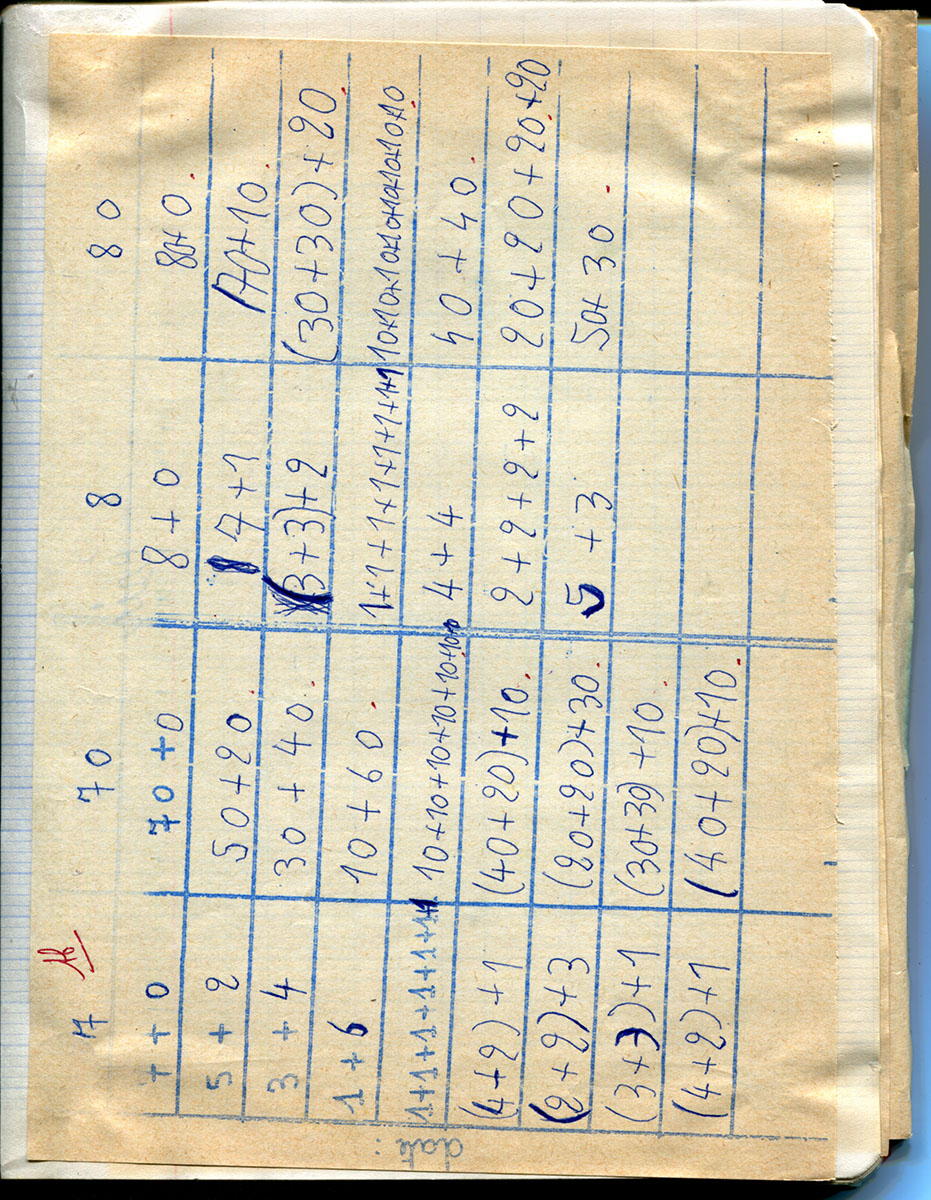 7 70 8 80
7 + 0 70 + 0 8 + 0 80+ 0.
5 + 2 50 + 20. 7 + 1 70+10.
3 + 4 30 + 40. (3+3)+2 (30+30)+20.
1 + 6 10 + 60. 1+1+1+1+1+1+1+1 10+10+10+10+10+10+10+10.
1+1+1+1+1+1+1 10+10+10+10+10+10+10. 4 + 4 40 + 40.
(4+2)+1 (40+20)+10. 2+2+2+2 20+20+20+20.
(2+2)+3 (20+20)+30. 5 + 3 50+ 30.
(3+3)+1 (30+30)+10.
(4+2)+1 (40+20)+10.
date: